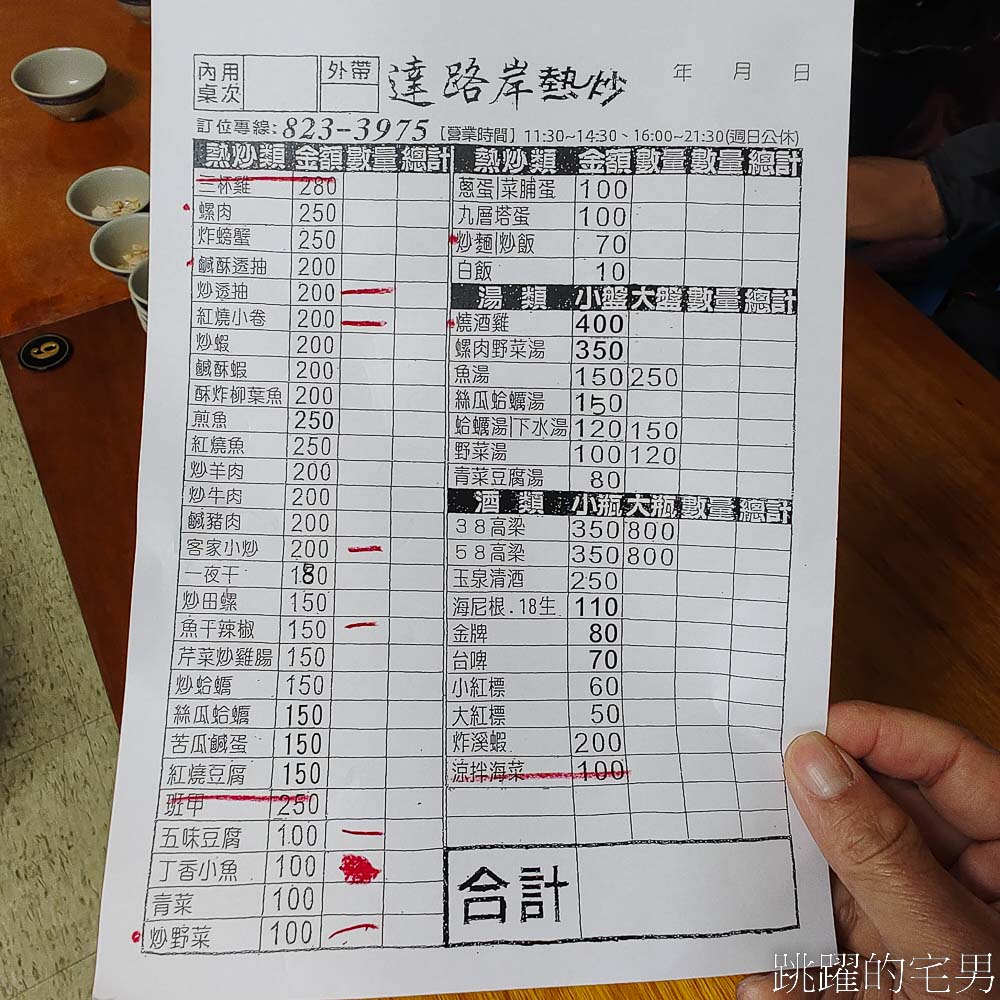 內用桌次 外帶 達路岸熱炒 年 月 日
訂位專線:823-3975【營業時間】11:30~14:30、16:00~21:30(週日公休)
熱炒類 金額 數量 總計
三杯雞 280
螺肉 250
炸螃蟹 250
鹹酥透抽 200
炒透抽 200
紅燒小卷 200
炒蝦 200
鹹酥蝦 200
酥炸柳葉魚 200
煎魚 250
紅燒魚 250
炒羊肉 200
炒牛肉 200
鹹豬肉 200
客家小炒 200
一夜干 180
炒田螺 150
魚干辣椒 150
芹菜炒雞腸 150
炒蛤蠣 150
絲瓜蛤蠣 150
苦瓜鹹蛋 150
紅燒豆腐 150
班甲 250
五味豆腐 100
丁香小魚 100
青菜 100
炒野菜 100
熱炒類 金額 數量 數量 總計
蔥蛋|菜脯蛋 100
九層塔蛋 100
炒麵|炒飯 70
白飯 10
湯類 小盤 大盤 數量 總計
燒酒雞 400
螺肉野菜湯 350
魚湯 150 250
絲瓜蛤蠣湯 150
蛤蠣湯|下水湯 120 150
野菜湯 100 120
青菜豆腐湯 80
酒類 小瓶 大瓶 數量 總計
38高梁 350 800
58高梁 350 800
玉泉清酒 250
海尼根.18生 110
金牌 80
台啤 70
小紅標 60
大紅標 50
炸溪蝦 200
涼拌海菜 100
合計
9
跳躍的宅男